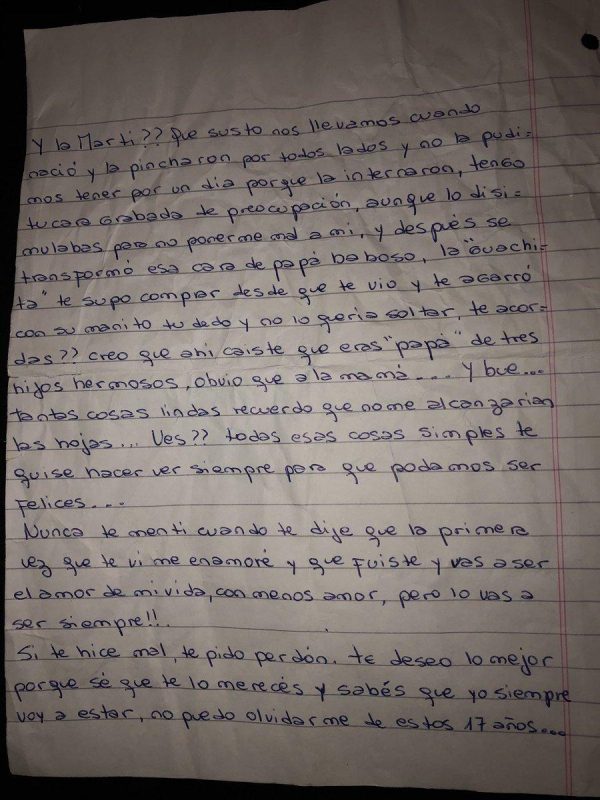 Y la Marti?? Que susto nos llevamos cuando
nació y la pincharon por todos lados y no la pudi-
mos tener por un dia porque la internaron, tengo
tu cara grabada de preocupación, aunque lo disi-
mulabas para no ponerme mal a mi, y después se
transformó esa cara de papá baboso, la "guachi-
ta" te supo comprar desde que te vio y te agarró
con su manito tu dedo y no lo queria soltar, te acor-
das?? creo que ahi caiste que eras "papá" de tres
hijos hermosos, obvio que a la mamá.... Y bue...
tantas cosas lindas recuerdo que no me alcanzarian
las hojas... Ves?? todas esas cosas simples te
quise hacer ver siempre para que podamos ser
felices...
Nunca te menti cuando te dije que la primera
vez que te vi me enamoré y que fuiste y vas a ser
el amor de mi vida, con menos amor, pero lo vas a
ser siempre!!.
Si te hice mal, te pido perdón. te deseo lo mejor
porque sé que te lo merecés y sabés que yo siempre
voy a estar, no puedo olvidarme de estos 17 años...